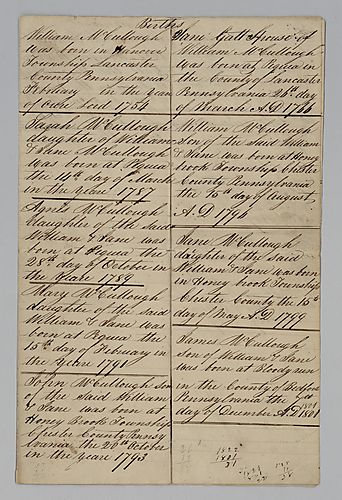 Births
William McCullough
was born in Hanover
Township Lancaster
County Pennsylvania
February in the year
of our Lord 1754
Sarah McCullough
daughter of William
& Jane McCullough
was born at Pequea
the 14th day of March
in the Year 1787
Agnes McCullough
daughter of the said
William & Jane was
born at Pequea the
28th day of October in
the Year 1789
Mary McCullough
daughter of the said
William & Jane was
born at Pequea the
15th day of February in
the Year 1791
John McCullough Son
of the said William
& Jane was born at
Honey Brook Township
Chester County Pennsy
lvania the 28th October
in the Year 1793
Jane Galt Spouse of
William McCullough
was born at Pequea in
the County of Lancaster
Pennsylvania 26th day
of March A.D. 1766
William McCullough
Son of the Said William
& Jane was born at Honey
brook Township Chester
County Pennsylvania
the 16th day of August
A.D 1796
Jane McCullough
daughter of the said
William & Jane was born
in Honey brook Township
Chester County the 16th
day of May A.D 1799
James McCullough
Son of William & Jane
was born at Bloody run
in the County of Bedford
Pennsylvania the
day of December A.D 1801
1822
1801
21